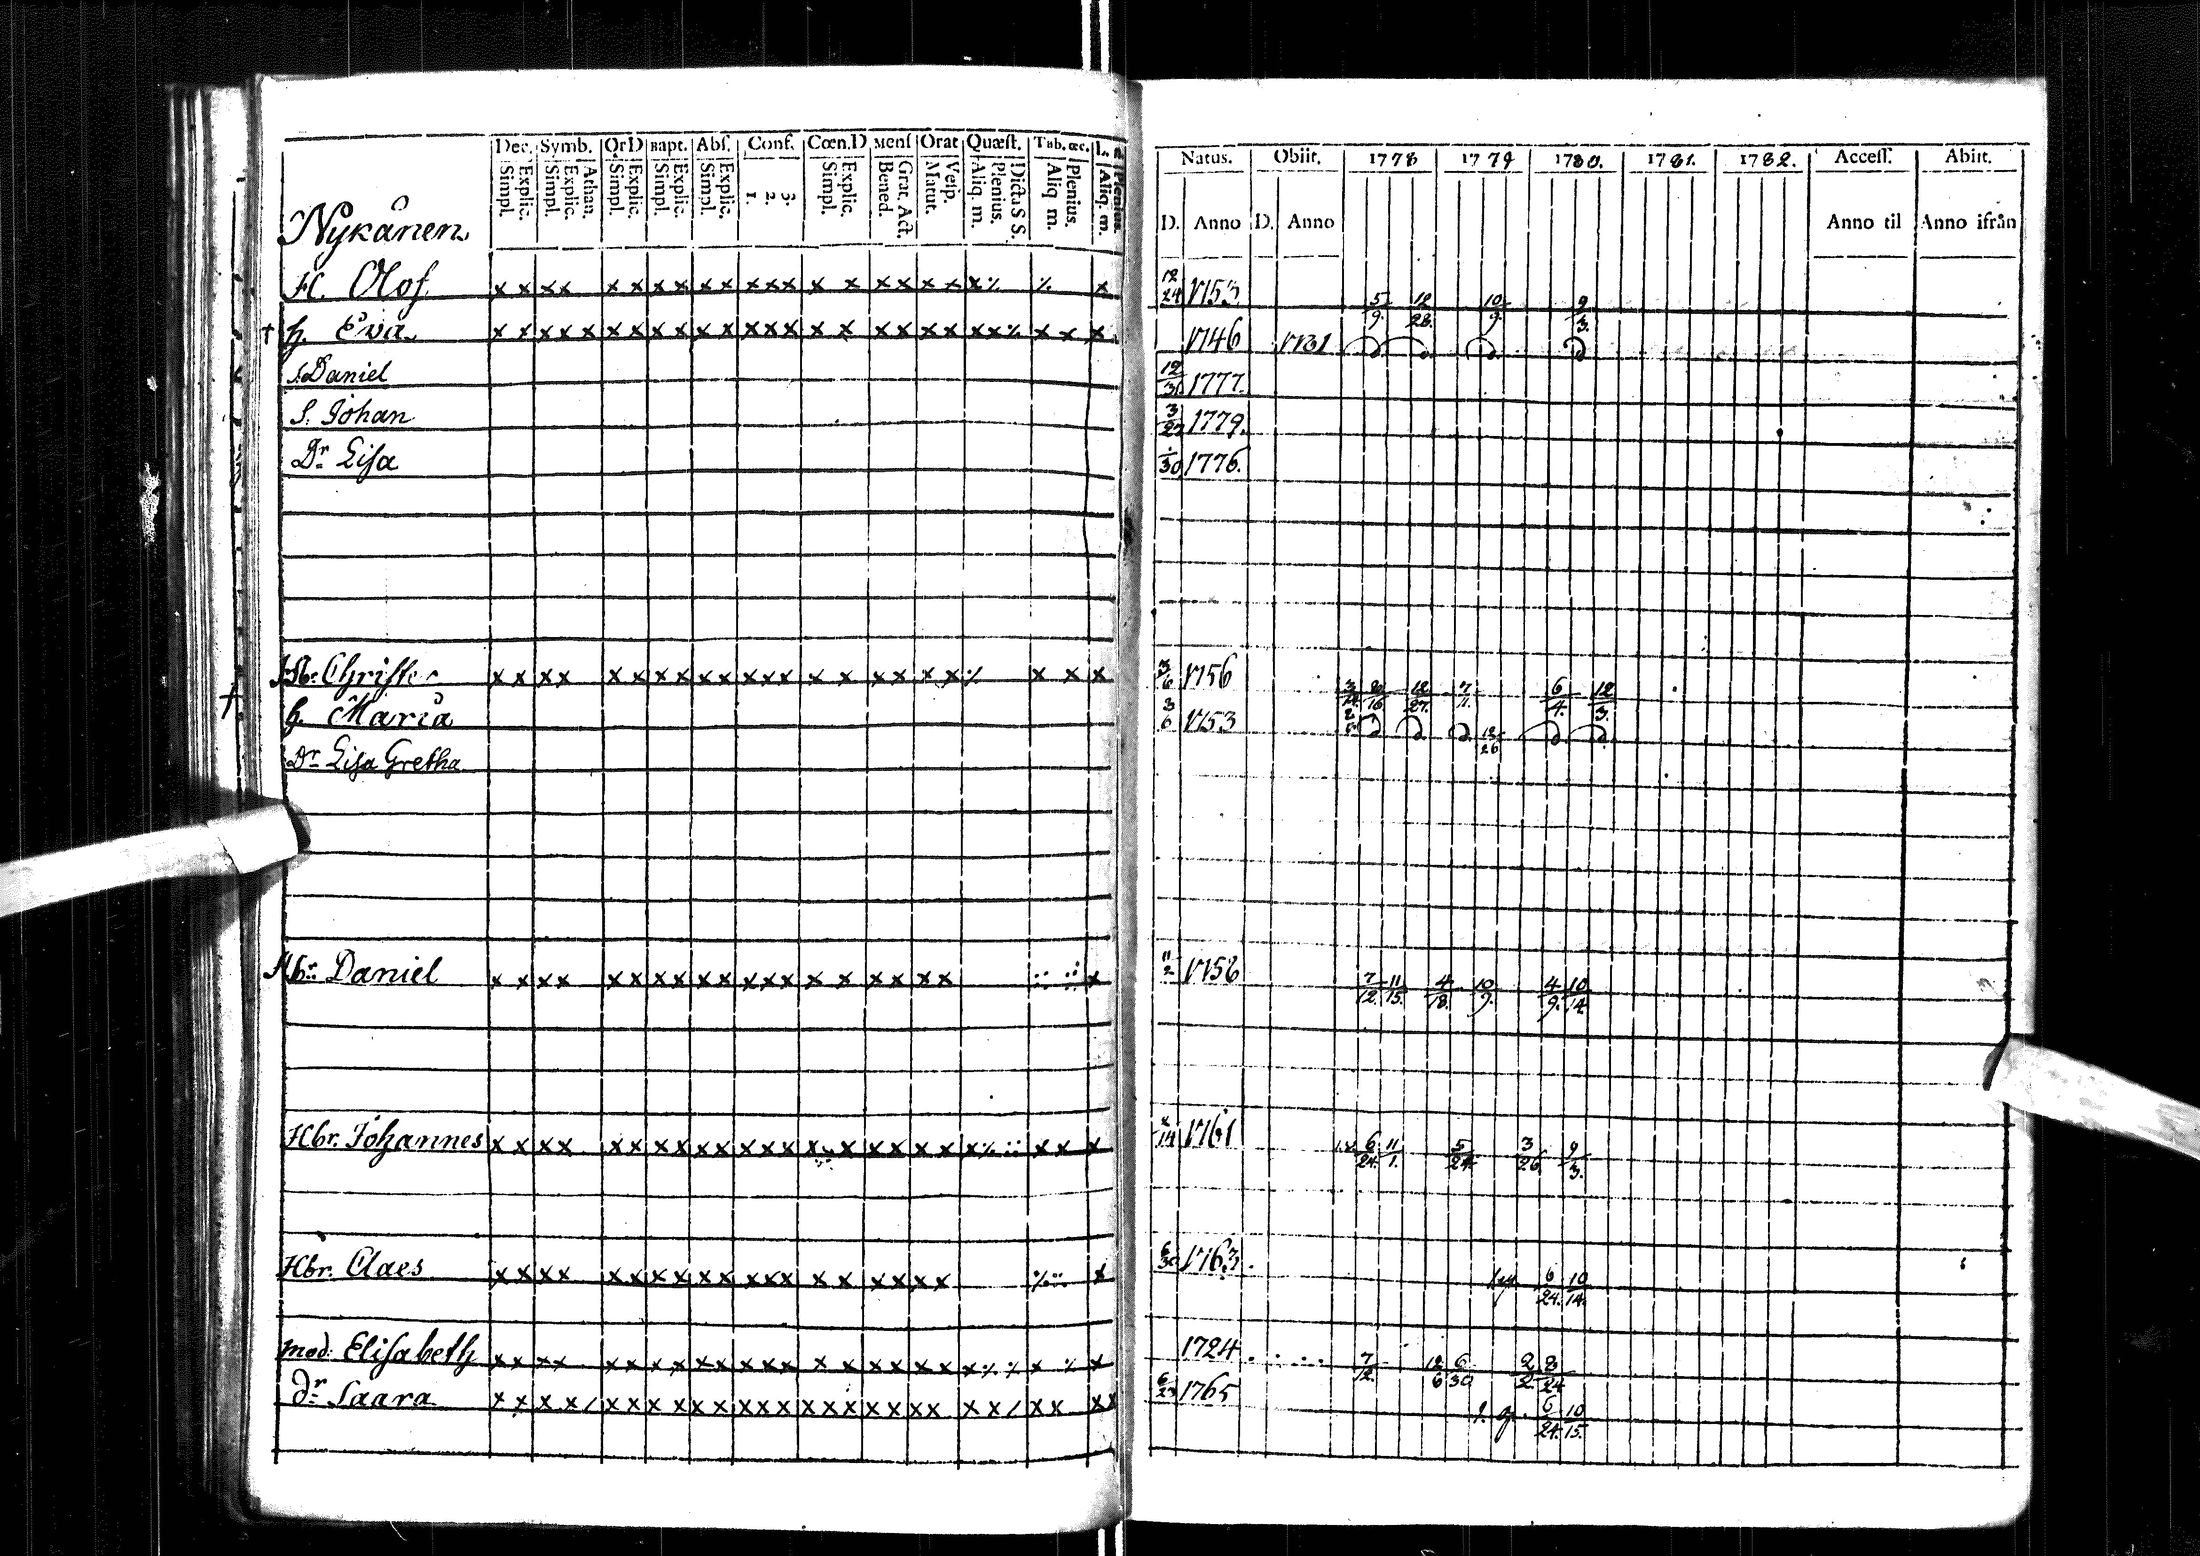 Dec. Symb. Or D Bapt. Abs. Conf. Cœn. D Mens Orat Quæst. Tab. œc.
Simpl. Explic. Simpl. Explic. Athan. Simpl. Explic. Simpl. Explic. Simpl. Explic. 1. 2. 3. Simpl. Explic. Bened. Grat. Act. Matut. Vesp. Aliq. m. Plenius. Dicta S S. Aliq m. Plenius. Aliq. m. Plenius.
Natus. Obiit. 1778 1779 1780. 1781. 1782. Access. Abiit.
D. Anno D. Anno Anno til Anno ifrån
Nykänen
H. Olof x x x x x x x x x x x x x x x x x x x x ⁒ ⁒ x 12/24 1753 5/9. 12/28. 10/9. 9/3.
† h. Eva x x x x x x x x x x x x x x x x x x x x x x ⁒ x x x 1746 1781
s. Daniel 12/31 1777.
S. Johan 3/27 1779.
Dr Lisa 30 1776.
Hbr Christer x x x x x x x x x x x x x x x x x x x ⁒ x x x 3/6 1756 12/27. 7/1. 6/4. 12/3.
† h. Maria 3/6 1753 12/26
Dr Lisa Gretha
Hbr Daniel x x x x x x x x x x x x x x x x x x x x 11/2 1758 7/12. 11/15. 4/18. 10/9. 4/9. 10/14
Hbr. Johannes x x x x x x x x x x x x x x x x x x x x ⁒ x x x 14 1761 6/24. 11/1. 5/24. 3/26 9/3.
Hbr. Claes x x x x x x x x x x x x x x x x x x x ⁒ x 6/30 1763. 6/24. 10/14.
mod. Elisabeth x x x x x x x x x x x x x x x x x x x x ⁒ ⁒ x ⁒ x 1724 7/12. 12/6 6/30 2/2. 8/24
dr Saara x x x x / x x x x x x x x x x x x x x x x x x / x x x x 6/23 1765 6/24. 10/15.